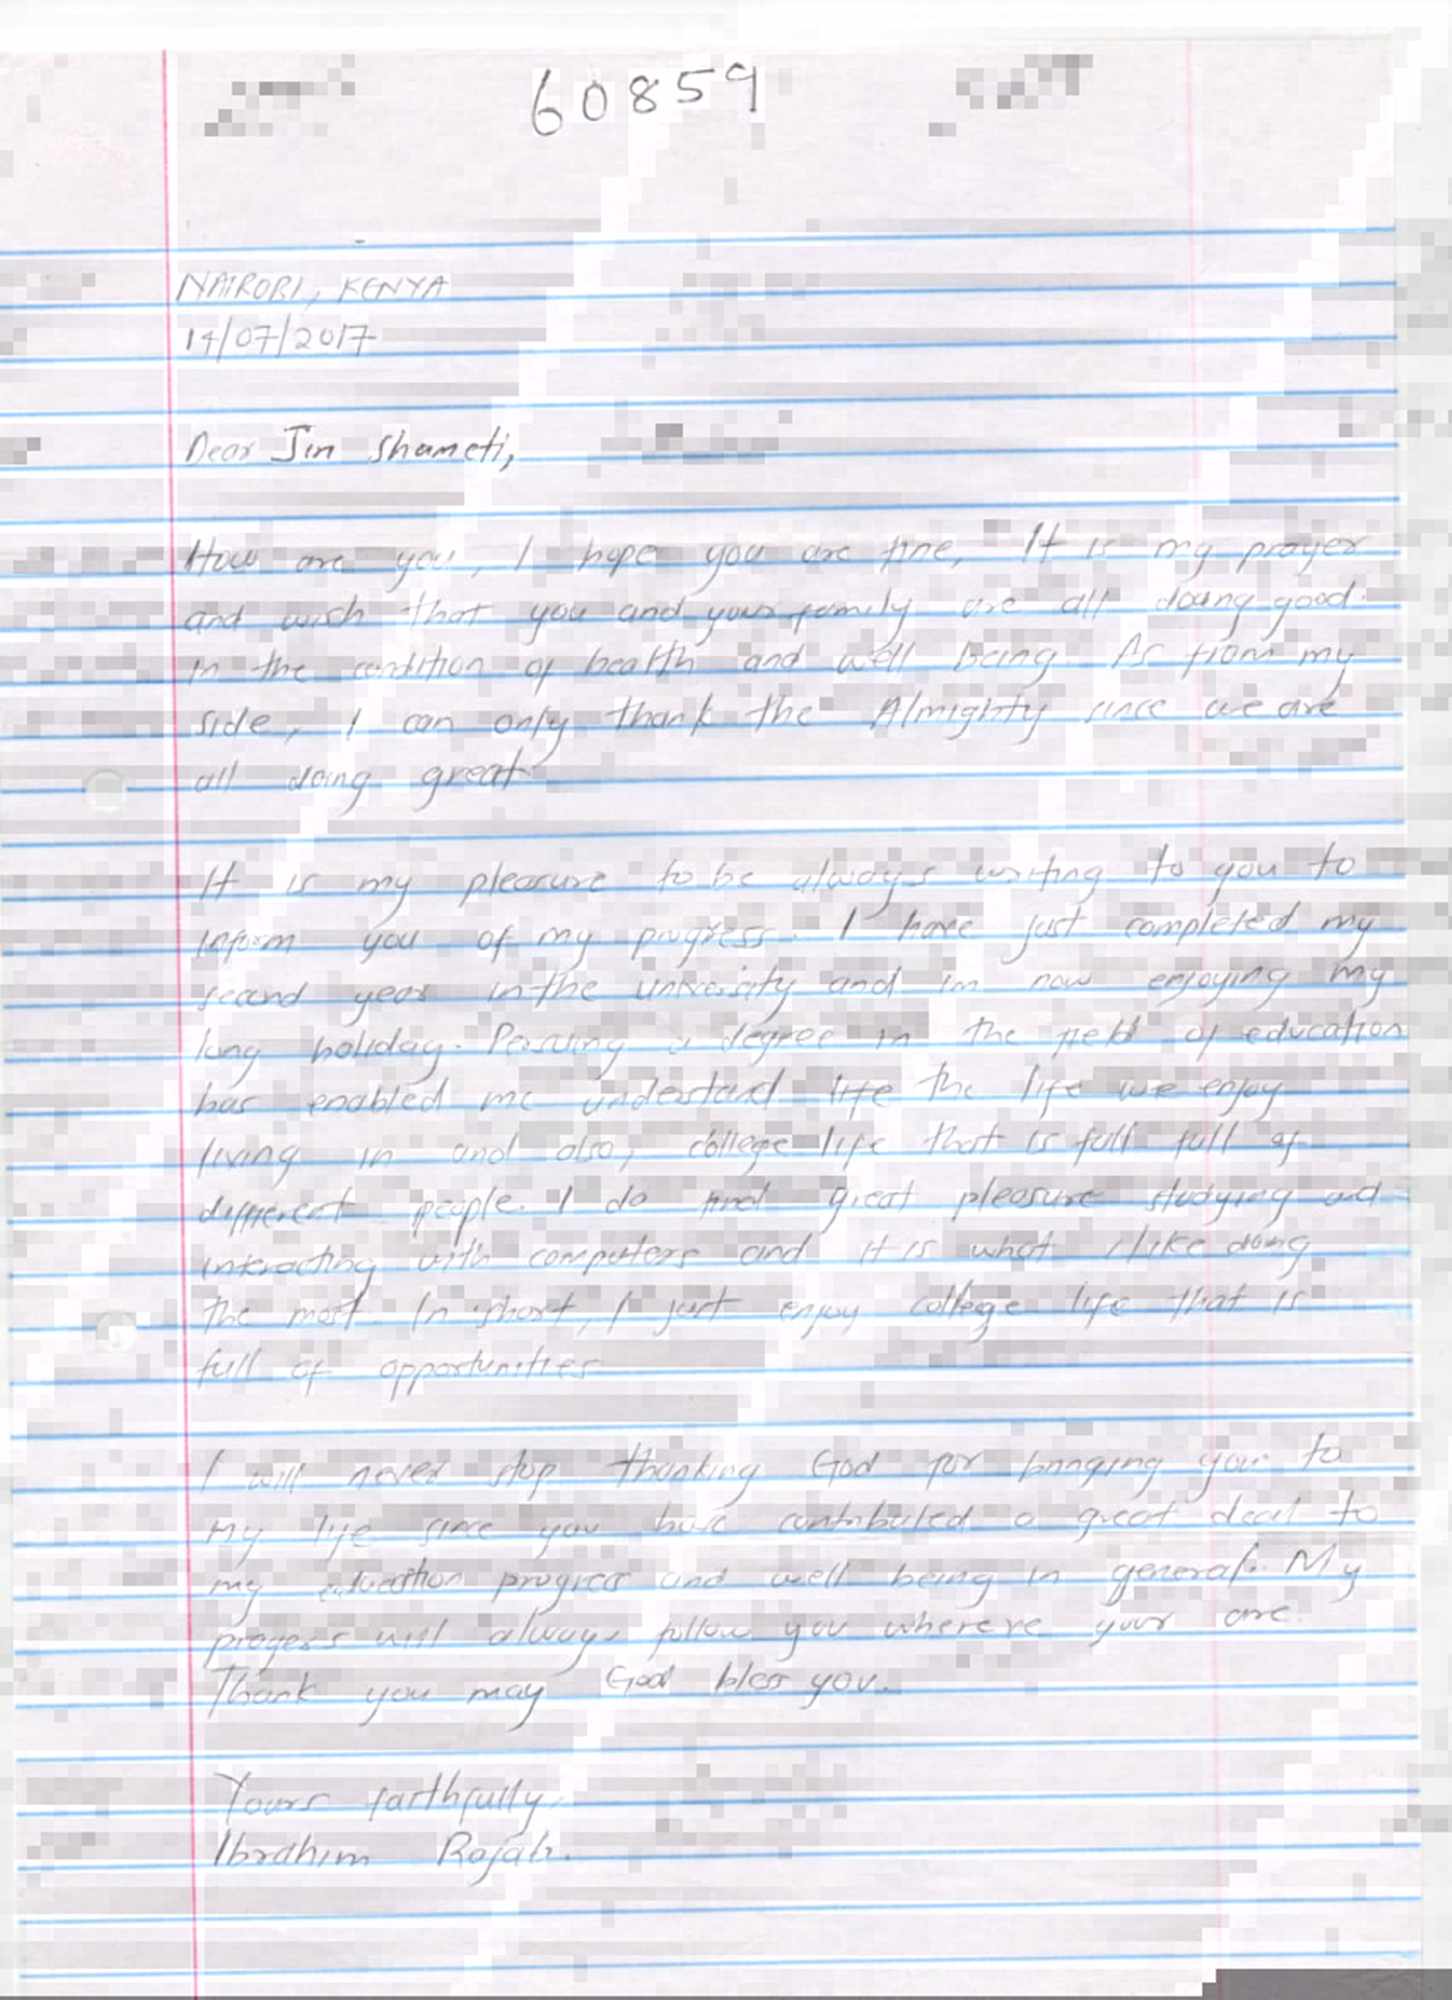 60859
NAIROBI, KENYA
14/07/2017
Dear Jin Shameti,
How are you, I hope you are fine, It is my prayer
and wish that you and your family are all doing good
in the condition of health and well being. As from my
side, I can only thank the Almighty since we are
all doing great.
It is my pleasure to be always writing to you to
inform you of my progress. I have just completed my
second year in the university and im now enjoying my
long holiday. Persuing a degree in the field of education
has enabled me understand life the life we enjoy
living in and also, college life that is full full of
different people. I do find great pleasure studying and
interacting with computers and it is what I like doing
the most. In short, I just enjoy college life that is
full of opportunities
I will never stop thanking God for bringing you to
my life since you have contributed a great deal to
my education progress and well being in general. My
prayers will always follow you where're your are.
Thank you may God bless you.
Yours faithfully,
Ibrahim Rajab.